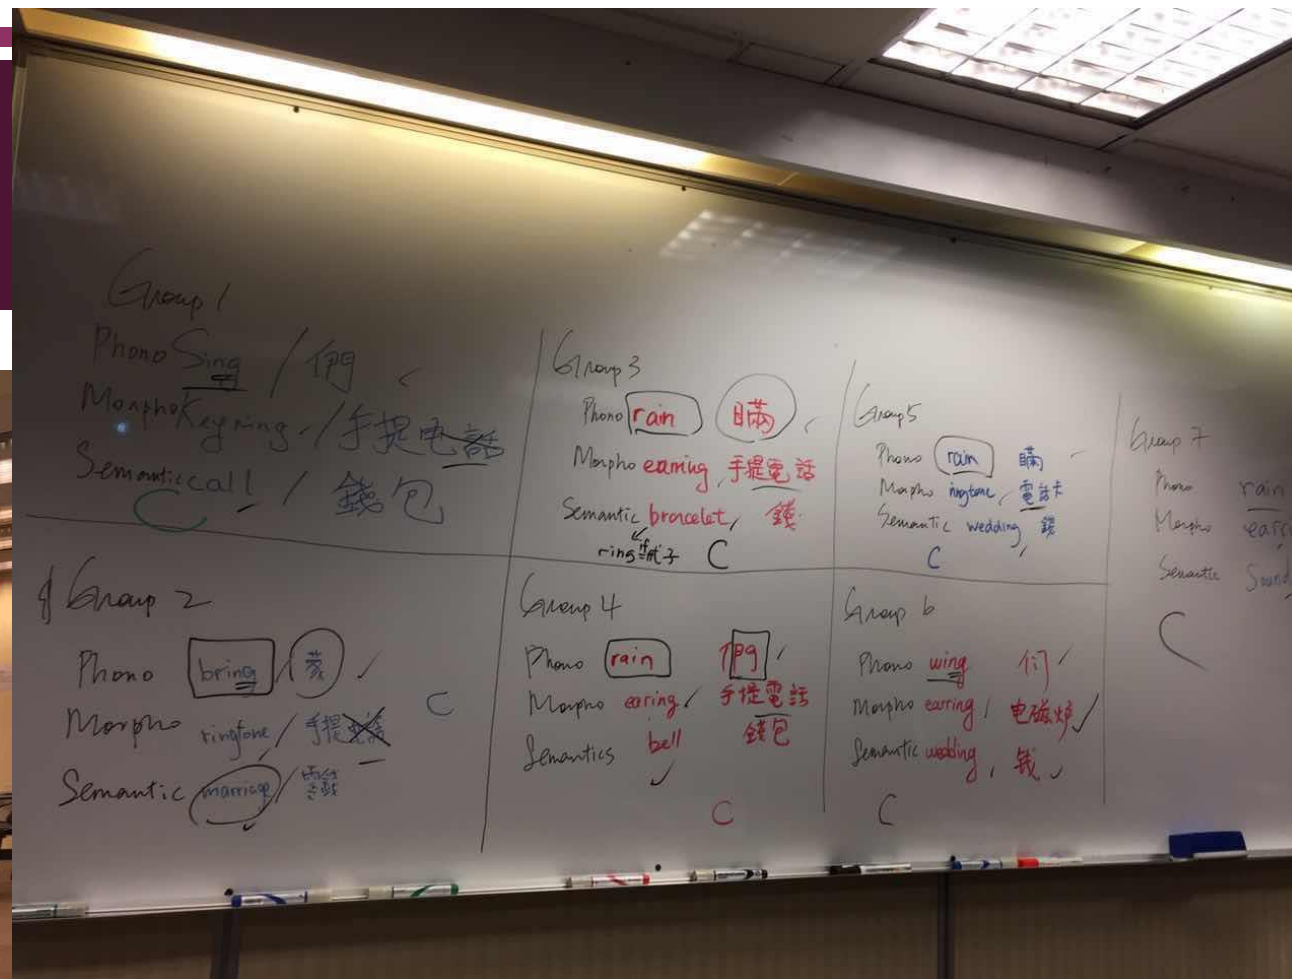 Group 1
Phono Sing / 們
Morpho Keyring / 手提电話
Semantic call / 錢包
Group 2
Phono bring / 蒙
Morpho ringtone / 手提電話
Semantic marriage /
Group 3
Phono rain 瞞
Morpho earring, 手提電話
Semantic bracelet, 錢
ring 戒子
C
Group 4
Phono rain 們
Morpho earing, 手提電話
Semantics bell 錢包
C
Group 5
Phono rain 瞞
Morpho ringtone, 電話卡
Semantic wedding, 錢
C
Group 6
Phono wing 们
Morpho earring, 电磁炉
Semantic wedding, 钱
C
Group 7
Phono rain
Morpho
Semantic Sound
C